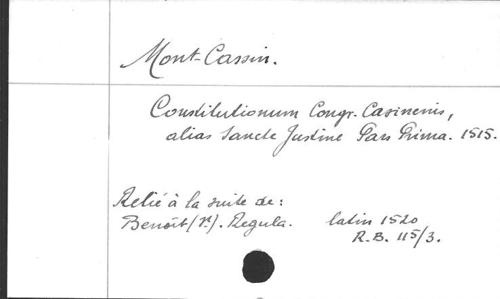 Mont-Cassin.
Constitutionum Congr. Casinensis,
alias Sancte Justine Pars Prima. 1515.
Relié à la suite de:
Benoît (St). Regula. latin 1520
R.B. 115/3.